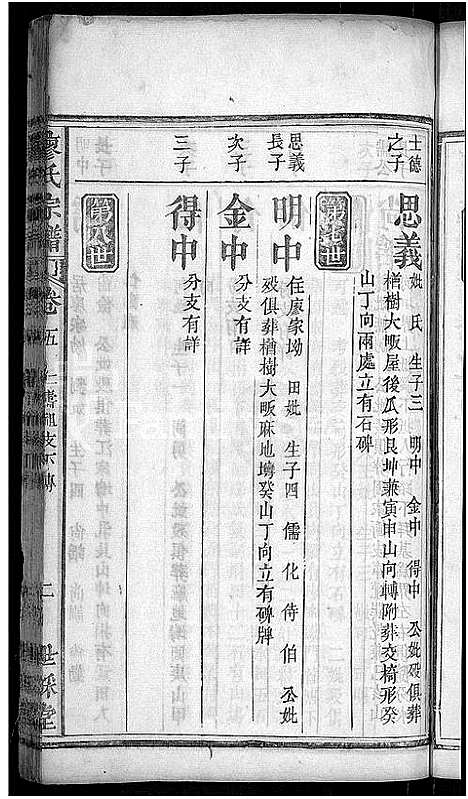 士德之子
思義
妣 氏 生子三 明中 金中 得中 公妣歿俱葬
楢樹大畈屋後瓜形艮坤兼寅申山向轉附葬交椅形癸
山丁向兩處立有石碑
第七世
思義長子
明中
住廖家坳 田妣 生子四 儒 化 侍 伯 公妣
歿俱葬楢樹大畈麻地塆癸山丁向立有碑牌
次子
金中
分支有詳
三子
得中
分支有詳
第八世
廖氏宗譜
卷五
二
世綵堂